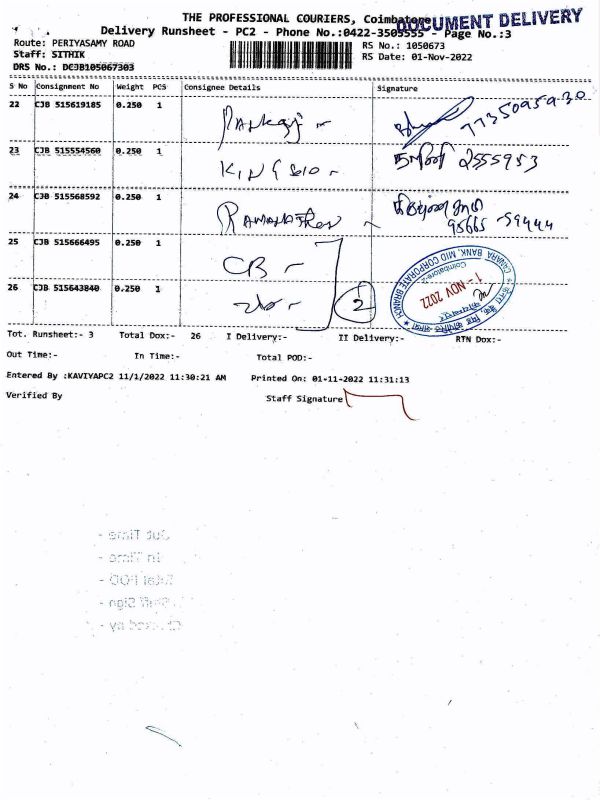 THE PROFESSIONAL COURIERS, Coimbatore
DOCUMENT DELIVERY
Delivery Runsheet - PC2 - Phone No.:0422-3505555 - Page No.:3
Route: PERIYASAMY ROAD
RS No.: 1050673
Staff: SITHIK
RS Date: 01-Nov-2022
DRS No.: DCJB105067303
S No Consignment No Weight PCS Consignee Details Signature
22 CJB 515619185 0.250 1
23 CJB 515554560 0.250 1 2555953
24 CJB 515568592 0.250 1
25 CJB 515666495 0.250 1 CB -
26 CJB 515643840 0.250 1 2
CANARA BANK, MID CORPORATE BRANCH
Coimbatore-2
1- NOV 2022
Tot. Runsheet:- 3 Total Dox:- 26 I Delivery:- II Delivery:- RTN Dox:-
Out Time:- In Time:- Total POD:-
Entered By :KAVIYAPC2 11/1/2022 11:30:21 AM Printed On: 01-11-2022 11:31:13
Verified By Staff Signature
Out Time -
In Time -
Total POD -
Staff Sign -
Checked by -